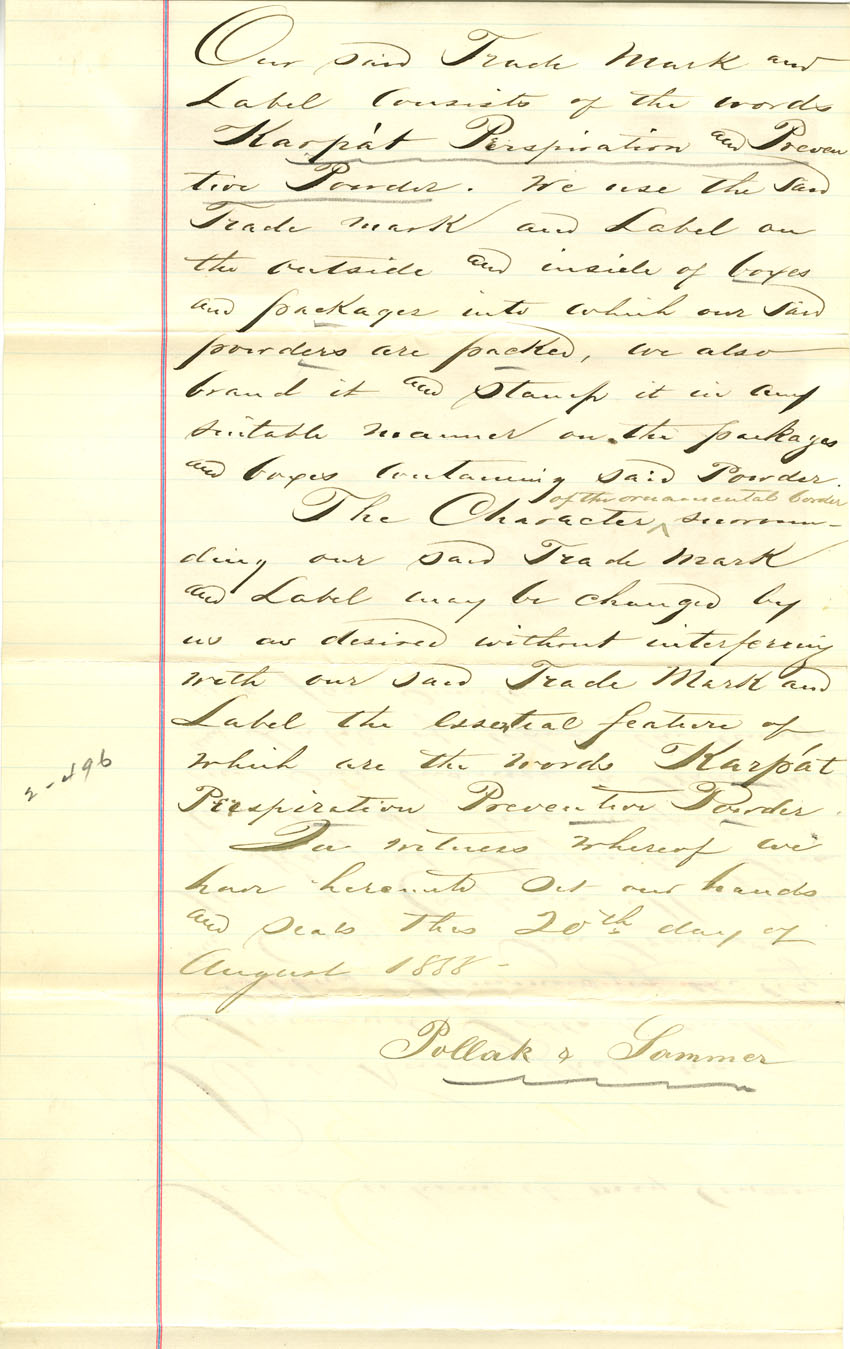 Our said Trade Mark and
Label Consists of the words
Karpát Perspiration and Preven
tive Powder. We use the said
Trade mark and Label on
the outside and inside of boxes
and packages into which our said
powders are packed, we also
brand it and stamp it in any
suitable manner on the packages
and boxes Containing said Powder.
of the ornamental border
The Character ^ surroun-
ding our said Trade Mark
and Label may be changed by
us as desired without interfering
with our said Trade Mark and
Label the essential feature of
which are the words Karpát
2-496
Perspiration Preventive Powder.
In witness whereof we
have hereunto set our hands
and seals this 20th day of
August 1888-
Pollak & Sommer